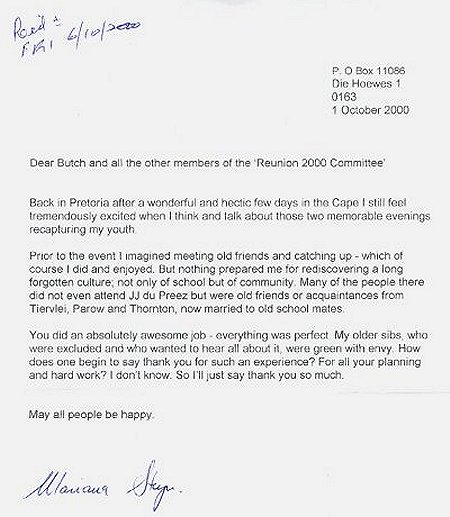 Rec'd
FRI 6/10/2000
P. O Box 11086
Die Hoewes 1
0163
1 October 2000
Dear Butch and all the other members of the 'Reunion 2000 Committee'
Back in Pretoria after a wonderful and hectic few days in the Cape I still feel
tremendously excited when I think and talk about those two memorable evenings
recapturing my youth.
Prior to the event I imagined meeting old friends and catching up - which of
course I did and enjoyed. But nothing prepared me for rediscovering a long
forgotten culture; not only of school but of community. Many of the people there
did not even attend JJ du Preez but were old friends or acquaintances from
Tiervlei, Parow and Thornton, now married to old school mates.
You did an absolutely awesome job - everything was perfect. My older sibs, who
were excluded and who wanted to hear all about it, were green with envy. How
does one begin to say thank you for such an experience? For all your planning
and hard work? I don't know. So I'll just say thank you so much.
May all people be happy.
Mariana Steyn.